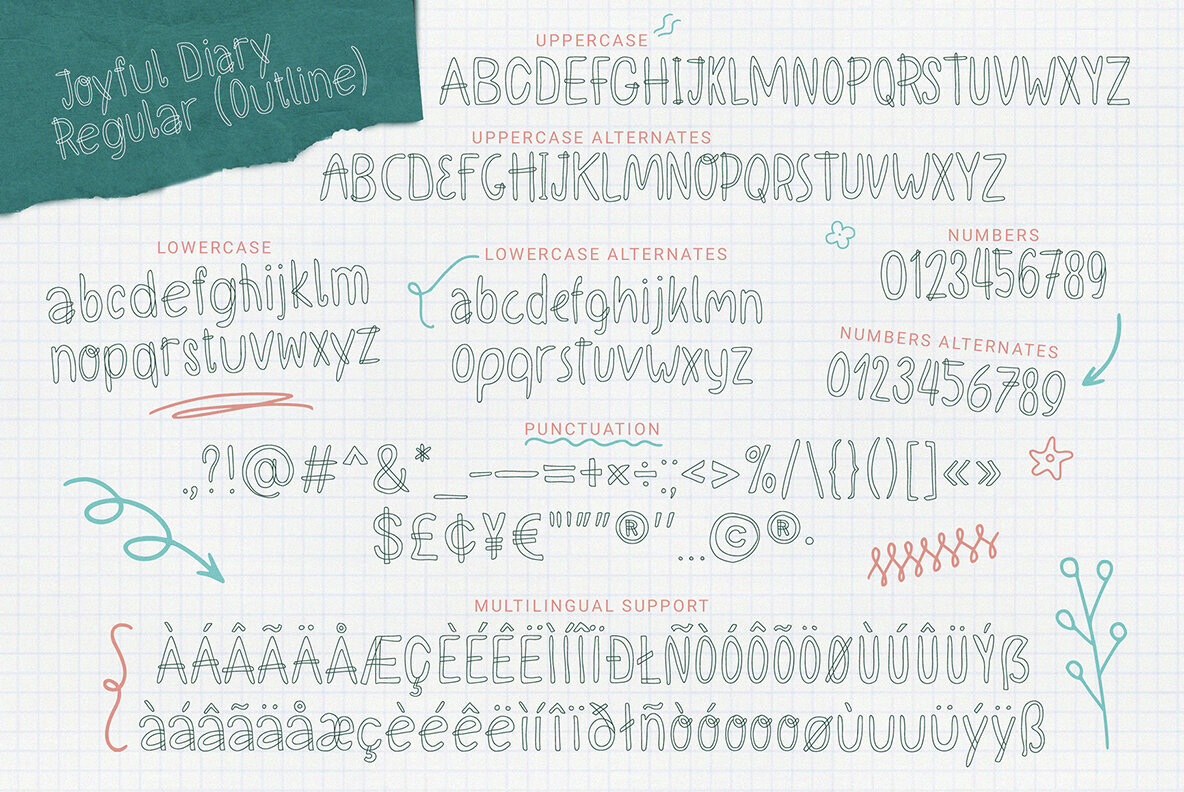 Joyful Diary
Regular (Outline)
UPPERCASE
ABCDEFGHIJKLMNOPQRSTUVWXYZ
UPPERCASE ALTERNATES
ABCDEFGHIJKLMNOPQRSTUVWXYZ
LOWERCASE
abcdefghijklm
nopqrstuvwxyz
LOWERCASE ALTERNATES
abcdefghijklmn
opqrstuvwxyz
NUMBERS
0123456789
NUMBERS ALTERNATES
0123456789
PUNCTUATION
.,?!@#^&* _-–—=+×÷:;<>%/\{}()[]«»
$£¢¥€"'“”"®'' ...©®.
MULTILINGUAL SUPPORT
ÀÁÂÃÄÅÆÇÈÉÊËÌÍÎÏÐŁÑÒÓÔÕÖØÙÚÛÜÝß
àáâãäåæçèéêëìíîïðłñòóôõöøùúûüýÿß